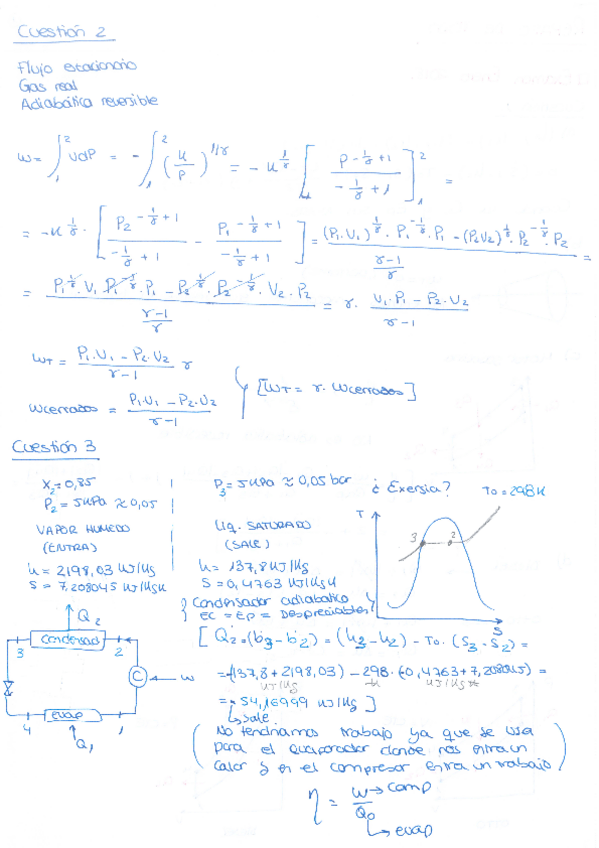 Cuestión 2
Flujo estacionario
Gas real
Adiabática reversible
w = ∫₁² vdP = - ∫₁² (K/P)^1/γ = - K^1/γ [ P^-1/γ+1 / -1/γ+1 ]₁² =
= -K^1/γ · [ P₂^-1/γ+1 / -1/γ+1 - P₁^-1/γ+1 / -1/γ+1 ] = (P₁·V₁)^1/γ · P₁^-1/γ · P₁ - (P₂V₂)^1/γ · P₂^-1/γ · P₂ / γ-1/γ =
= P₁^1/γ · V₁ · P₁^-1/γ · P₁ - P₂^1/γ · P₂^-1/γ · V₂ · P₂ / γ-1/γ = γ · V₁·P₁ - P₂·V₂ / γ-1
WT = P₁·V₁ - P₂·V₂ / γ-1 γ
[WT = γ · Wcerrados]
Wcerrados = P₁·V₁ - P₂·V₂ / γ-1
Cuestión 3
X₂ = 0,85
P₂ = 5KPa ≈ 0,05
VAPOR HUMEDO
(ENTRA)
u = 2198,03 KJ/Kg
S = 7,208045 KJ/KgK
P₃ = 5KPa ≈ 0,05 bar
LIQ. SATURADO
(SALE)
u = 137,8 KJ/Kg
S = 0,4763 KJ/KgK
¿Exersia?
To = 298K
T
3
2
S
{ Condensador adiabático
EC = EP = Despreciables }
Q₂
condensad
3
2
C
w
evap
4
1
Q₁
[ Q₂ = (b₃ - b₂) = (u₃ - u₂) - To · (S₃ - S₂) =
= (137,8 + 2198,03) - 298 · (0,4763 + 7,208045) =
KJ/Kg
K
KJ/KgK
= - 54,16999 KJ/Kg ]
sale
( No tendriamos trabajo ya que se usa
para el evaporador donde nos entra un
calor y en el compresor entra un trabajo )
η = W / Q₀
comp
evap